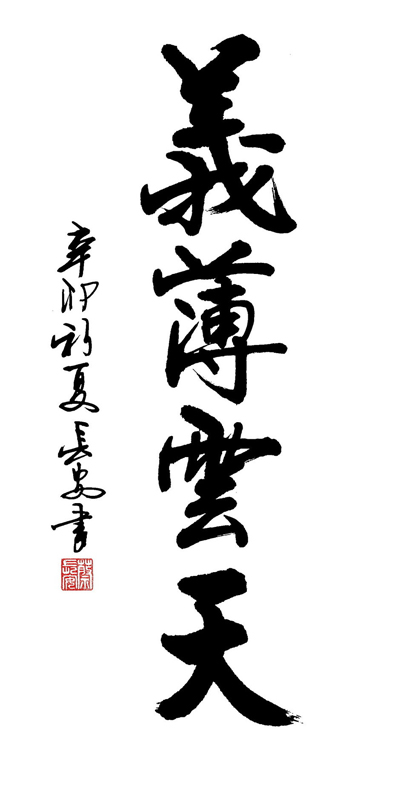 義薄雲天
辛卯初夏長安書